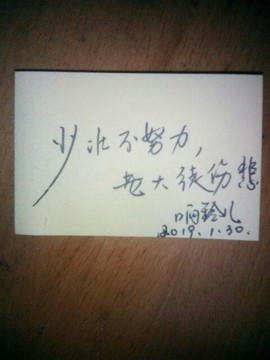 少壮不努力，
老大徒伤悲
2019.1.30.